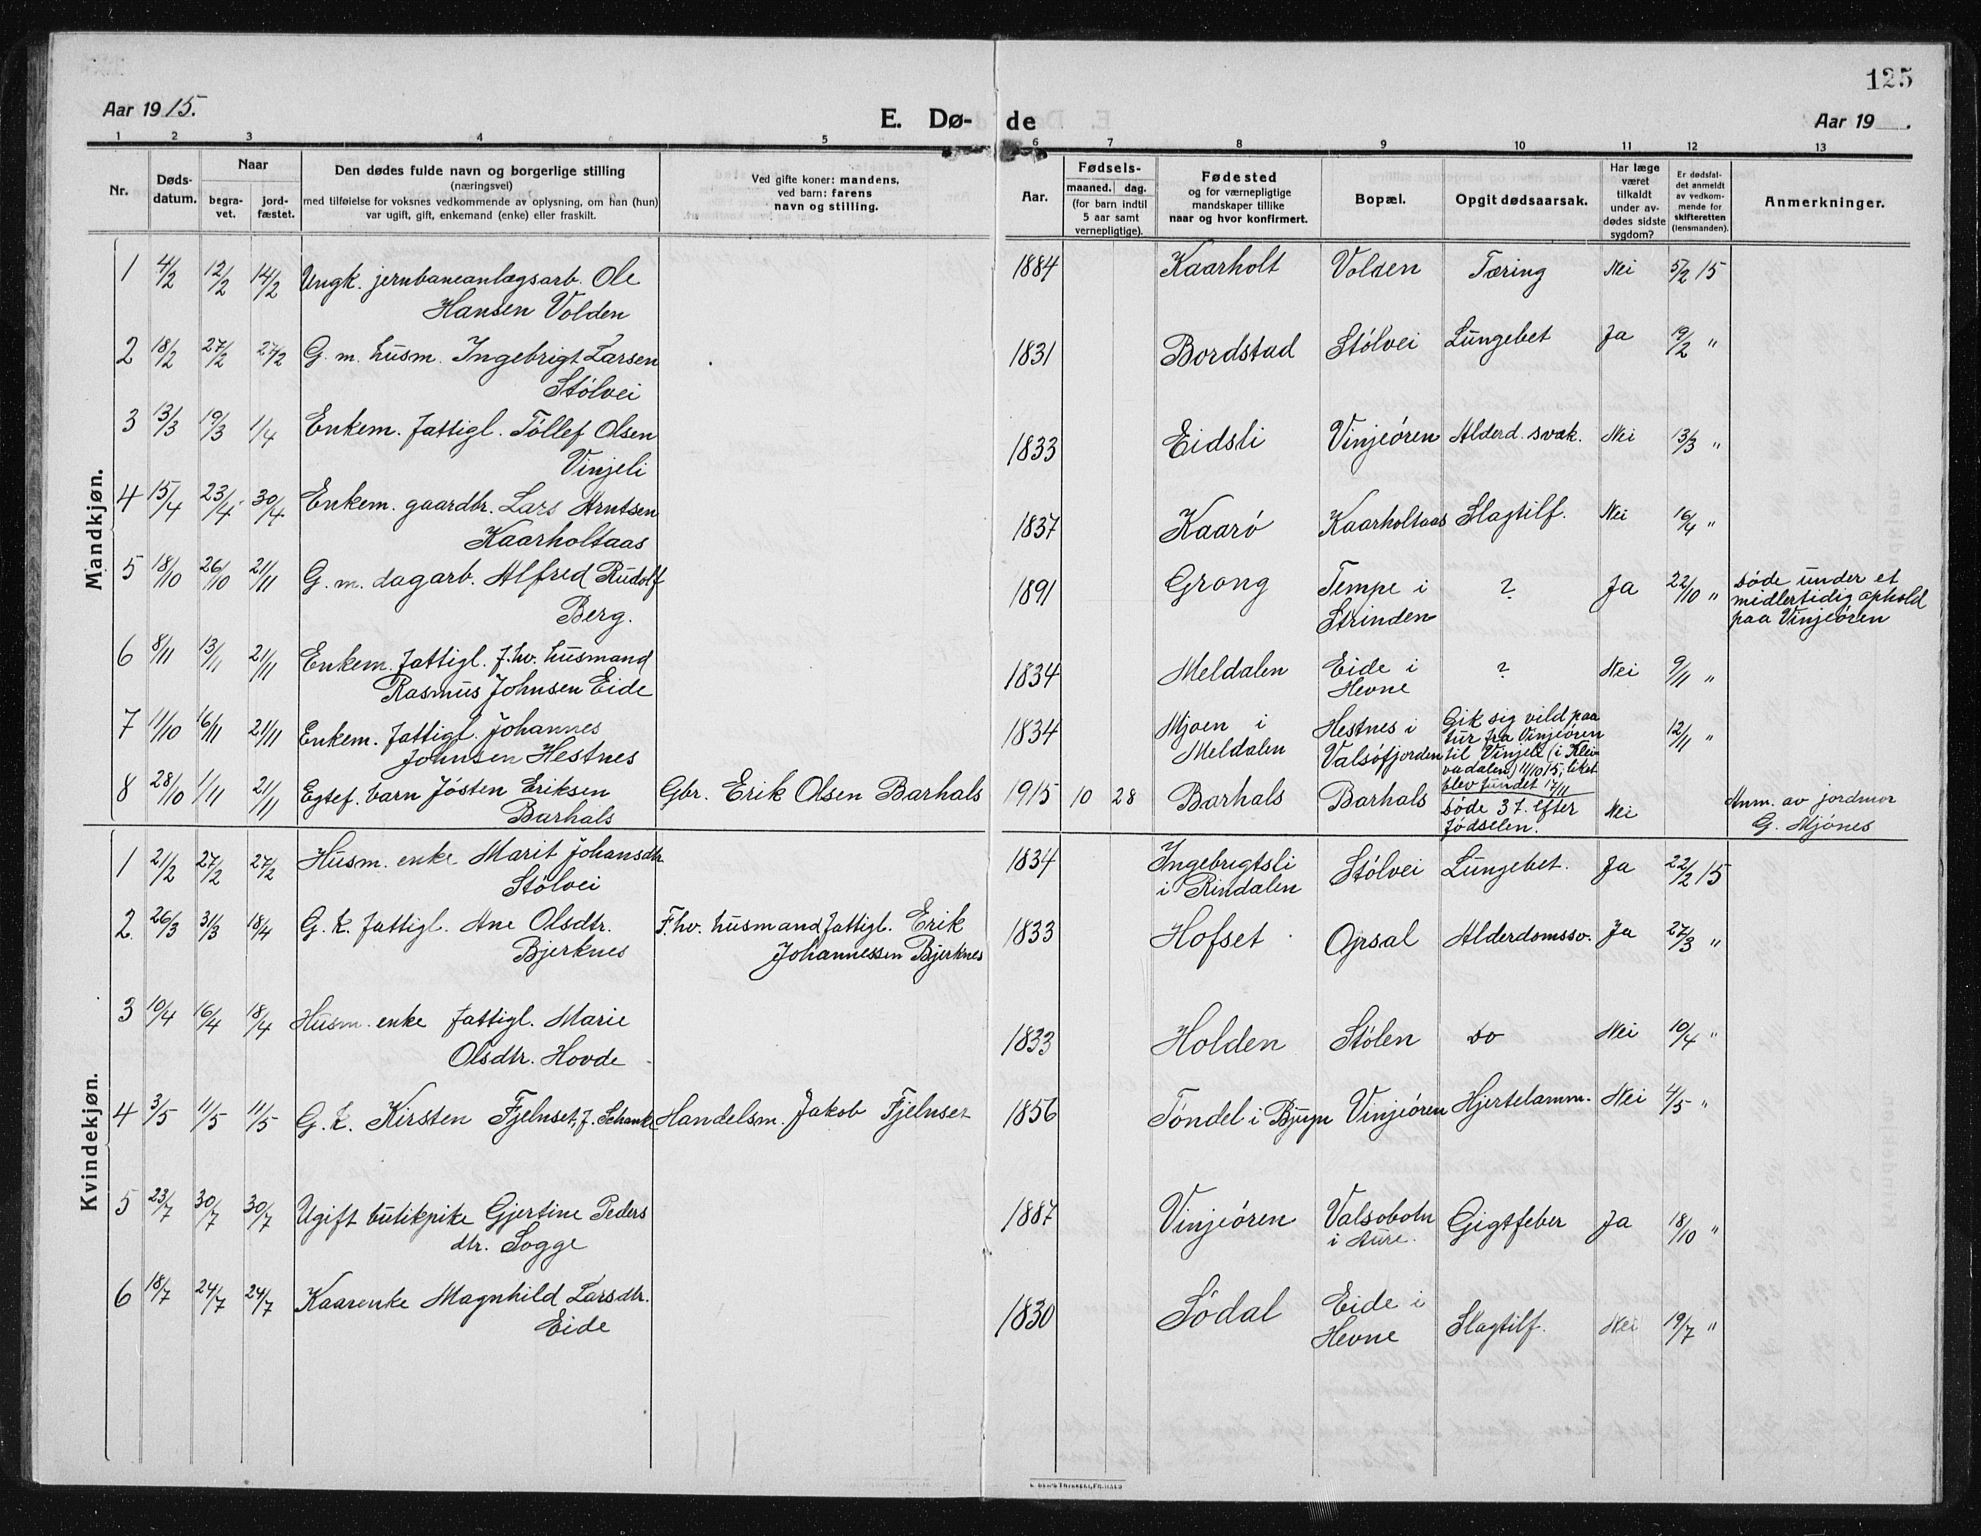 125
Aar 1915.
E. Dø-
de
Aar 19 .
1 2 3 4 5 6 7 8 9 10 11 12 13
Nr.
Døds-
datum.
Naar
begra-
vet.
jord-
fæstet.
Den dødes fulde navn og borgerlige stilling
(næringsvei)
med tilføielse for voksnes vedkommende av oplysning, om han (hun)
var ugift, gift, enkemand (enke) eller fraskilt.
Ved gifte koner: mandens,
ved barn: farens
navn og stilling.
Aar.
Fødsels-
maaned. dag.
(for barn indtil
5 aar samt
vernepligtige).
Fødested
og for værnepligtige
mandskaper tillike
naar og hvor konfirmert.
Bopæl.
Opgit dødsaarsak.
Har læge
været
tilkaldt
under av-
dødes sidste
sygdom?
Er dødsfal-
det anmeldt
av vedkom-
mende for
skifteretten
(lensmanden).
Anmerkninger.
Mandkjøn.
1 4/2 12/2 14/2 Ungk. jernbaneanlægsarb. Ole
Hansen Volden
1884 Kaarholt Volden Tæring Nei 5/2 15
2 18/2 27/2 27/2 G. m. husm. Ingebrigt Larsen
Stølvei
1831 Bordstad Stølvei Lungebet Ja 19/2 "
3 13/3 19/3 1/4 Enkem. fattigl. Tøllef Olsen
Vinjeli
1833 Eidsli Vinjeøren Alderd. svak. Nei 13/3 "
4 15/4 23/4 30/4 Enkem. gaardbr. Lars Arntsen
Kaarholtaas
1837 Kaarø Kaarholtaas Slagtilf. Nei 16/4 "
5 18/10 26/10 21/11 G. m. dagarb. Alfred Rudolf
Berg.
1891 Grong Tempe i
Strinden
? Ja 22/10 " Døde under et
midlertidig ophold
paa Vinjeøren
6 8/11 13/11 21/11 Enkem. fattigl. f.hv. husmand
Rasmus Johnsen Eide
1834 Meldalen Eide i
Hevne
? Nei 9/11 "
7 11/10 16/11 21/11 Enkem. fattigl. Johannes
Johnsen Hestnes
1834 Mjoen i
Meldalen
Hestnes i
Valsøfjorden
Gik sig vild paa
tur fra Vinjeøren
til Vinjeli (i Klei-
vadalen) 11/10 15; liket
blev fundet 12/11
12/11 "
8 28/10 1/11 21/11 Egtef. barn Jósten Eriksen
Barhals
Gbr. Erik Olsen Barhals
1915 10 28 Barhals Barhals Døde 3 t. efter
fødselen.
Nei
Anm. av jordmor
G. Mjønes
Kvindekjøn.
1 21/2 27/2 27/2 Husm. enke Marit Johansdtr
Stølvei
1834 Ingebrigtsli
i Rindalen
Stølvei Lungebet. Ja 22/2 15
2 26/3 31/3 18/4 G. k. fattigl. Ane Olsdtr.
Bjerknes
F.hv. husmand fattigl. Erik
Johannessen Bjerknes
1833 Hofset Opsal Alderdomssv. Ja 27/3 "
3 10/4 16/4 18/4 Husm. enke fattigl. Marie
Olsdtr. Hovde
1833 Holden Stølen do Nei 10/4 "
4 3/5 11/5 11/5 G. k. Kirsten Fjelnset, f. Schanke
Handelsm. Jakob Fjelnset
1856 Tøndel i Bjugn Vinjeøren Hjertelamm. Nei 4/5 "
5 23/7 30/7 30/7 Ugift butikpike Gjertine Peders
dtr. Sogge
1887 Vinjeøren Valsøbotn
i Aure.
Gigtfeber Ja 18/10 "
6 18/7 24/7 24/7 Kaarenke Magnhild Larsdtr.
Eide
1830 Sødal Eide i
Hevne
Slagtilf. Nei 19/7 "